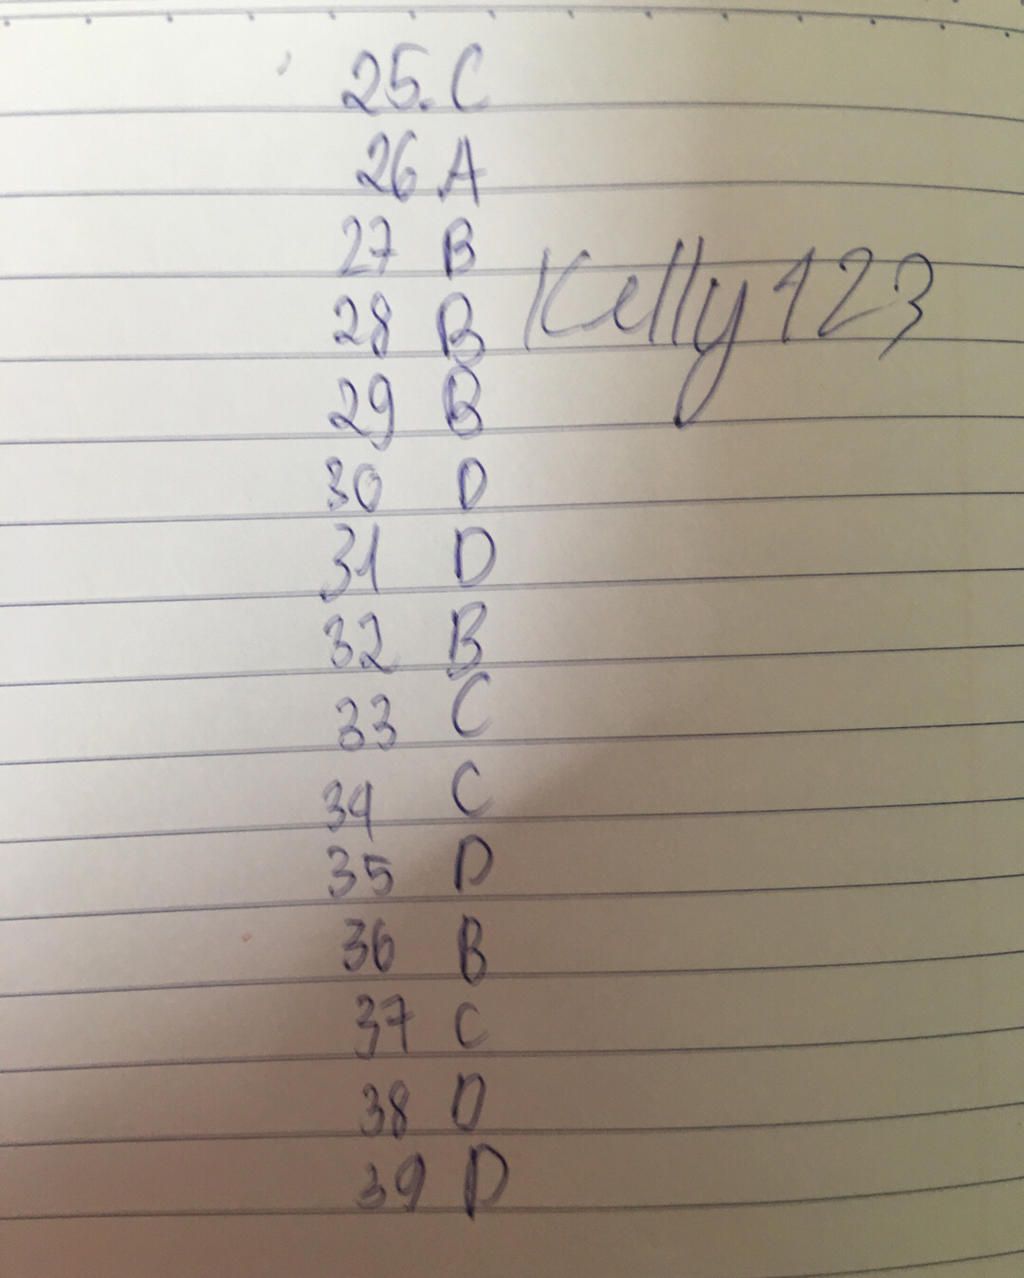 25. C
26 A
27 B
28 B Kelly123
29 B
30 D
31 D
32 B
33 C
34 C
35 D
36 B
37 C
38 D
39 D